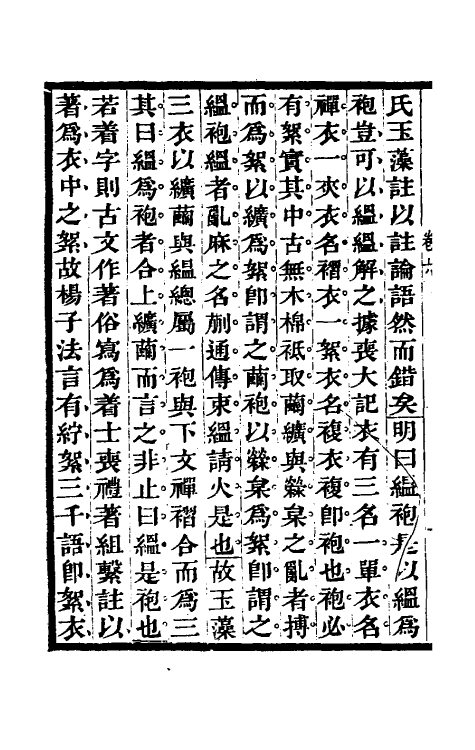 氏玉藻註以註論語然而錯矣明曰縕袍是以縕爲
袍豈可以縕縕解之據喪大記衣有三名一單衣名
襌衣一夾衣名褶衣一絮衣名複衣複卽袍也袍必
有絮實其中古無木棉祇取繭纊與䌓枲之亂者摶
而爲絮以纊爲絮卽謂之繭袍以䌓枲爲絮卽謂之
縕袍縕者亂麻之名蒯通傳束縕請火是也故玉藻
三衣以纊繭與縕總屬一袍與下文襌褶合而爲三
其曰縕爲袍者合上纊繭而言之非止曰縕是袍也
若着字則古文作著俗寫爲着士喪禮著組繫註以
著爲衣中之絮故楊子法言有紵絮三千語卽絮衣
卷六